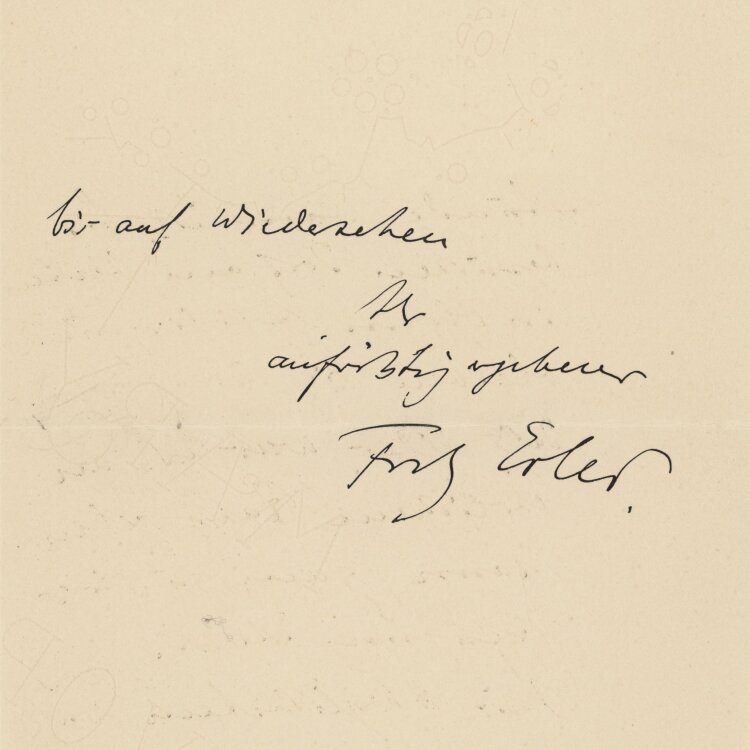 bis auf Wiedersehen
Ihr
aufrichtig ergebener
Fritz Erler.